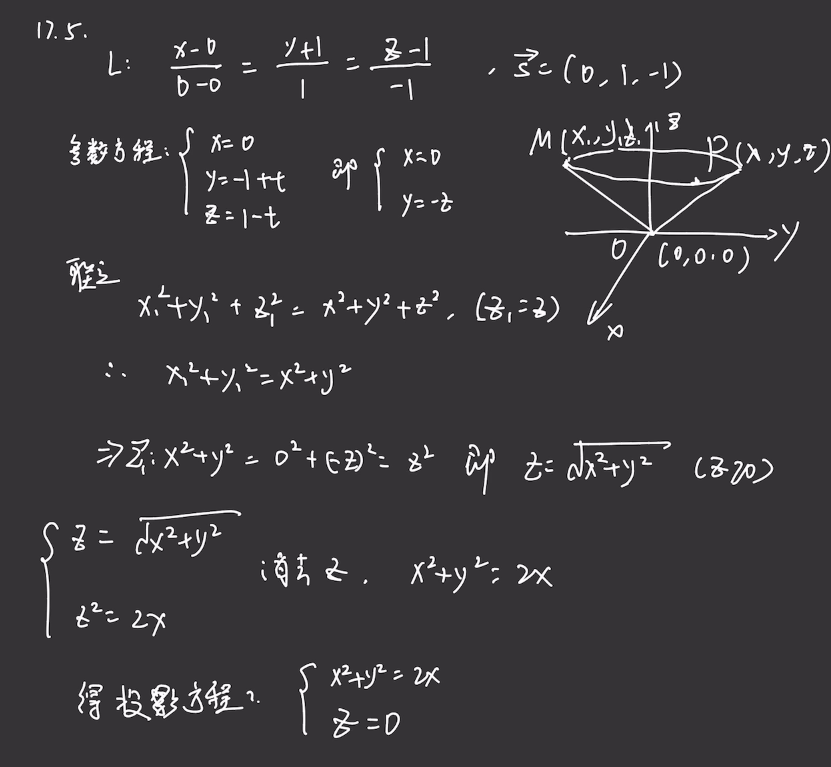 17.5.
L: (x-0)/(0-0) = (y+1)/1 = (z-1)/(-1) , s⃗=(0,1,-1)
参数方程: { x=0 y=-1+t z=1-t 即 { x=0 y=-z
M(x₁,y₁,z₁) z P(x,y,z)
O (0,0,0) y
x
x₁²+y₁²+z₁²=x²+y²+z², (z₁=z)
∴ x₁²+y₁²=x²+y²
⇒Σ₁: x²+y²=0²+(-z)²=z² 即 z=√(x²+y²) (z≥0)
{ z=√(x²+y²) z²=2x 消去z. x²+y²=2x
得投影方程: { x²+y²=2x z=0